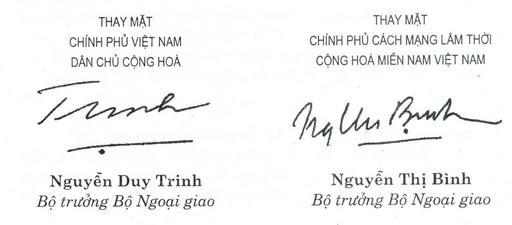 THAY MẶT
CHÍNH PHỦ VIỆT NAM
DÂN CHỦ CỘNG HOÀ
Trinh
Nguyễn Duy Trinh
Bộ trưởng Bộ Ngoại giao
THAY MẶT
CHÍNH PHỦ CÁCH MẠNG LÂM THỜI
CỘNG HOÀ MIỀN NAM VIỆT NAM
Ng Thi Bình
Nguyễn Thị Bình
Bộ trưởng Bộ Ngoại giao